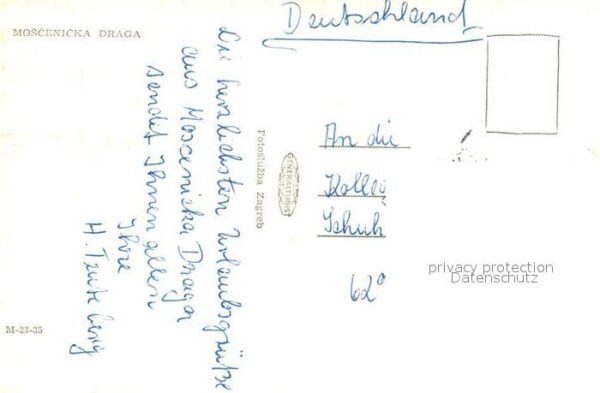 MOŠĆENIČKA DRAGA
Die herzlichsten Urlaubsgrüße
aus Moscenicka Draga
sendet Ihnen allen
Ihre
H.
Fotoslužba Zagreb
GENERALTURIST
M-23-35
Deutschland
An die
62°
privacy protection
Datenschutz